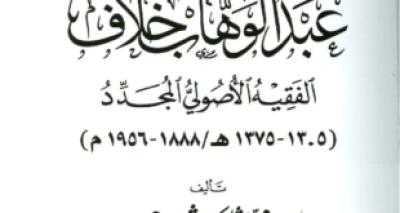 عبدالوهاب خلاف
الفقيه الأصولي المجدد
(١٣٠٥-١٣٧٥ هـ/١٨٨٨-١٩٥٦ م)
تأليف